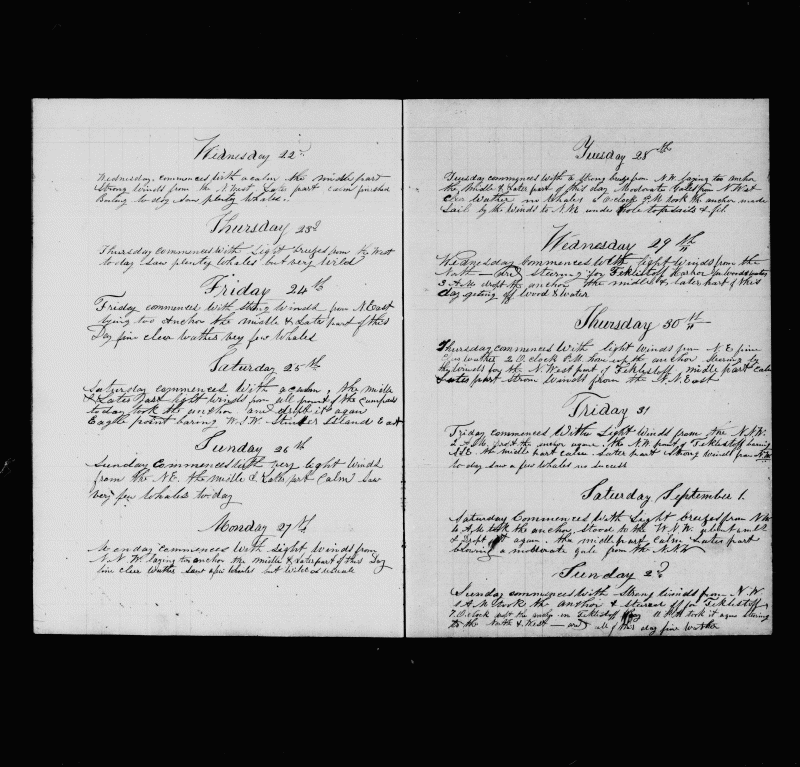 Wednesday 22nd
Wednesday. commences with a calm the middle part
Strong winds from the N West Later part calm finished
Boiling to day saw plenty whales.
Thursday 23d
Thursday commences with Light breezes from the West
to day saw plenty Whales but very Wild
Friday 24th
Friday commences with strong winds from N East
lying too anchor the middle & Later part of this
Day fine clear wather very few Whales
Saturday 25th
Saturday commences with a calm, the middle
& Later Part light winds from all points of the compass
to day took the anchor and dropt it again
Eagle point baring W.S.W. Island East
Sunday 26th
Sunday commences with very light winds
from the N.E. the middle & Later part Calm Saw
very few Whales to day
Monday 27th
Monday commences with Light winds from
N.N.W. laying too anchor the middle & Later part of this Day
fine clear wather Saw a few Whales but wild as usuale
Tuesday 28th
Tuesday commences with a strong breeze from N.W. laying too anchor
the middle & Later part of this day Moderate Gales from N West
clear wather no whales 5 O clock P.M. took the anchor made
Sail by the winds to N.N. under whole topsails & jib.
Wednesday 29th
Wednesday commences with light winds from the
North and steering for Feklistoff Harbor for wood & water
3 A.M. dropt the anchor the middle & later part of this
day geting off wood & water
Thursday 30th
Thursday commences with light winds from N.E. fine
clear wather 2 O.clock P.M. hove up the anchor steering by
the winds for the N. West point of Feklistoff, midle part calm
Later part Strong Winds from the N.N. East
Friday 31
Friday commences with Light winds from the N.N.W.
2 A.M. the anchor again. the N.W. point of Feklistoff baring
S.S.E. the middle part calm Later part Strong winds from N.W.
to day saw a few whales no Success
Saturday September 1.
Saturday Commences with Light breezes from N.W.
6 A.M. took the anchor, stood to the W.N.W. about miles
& Dropt it again. the middle part Calm Later part
blowing a moderate gale from the N.N.W
Sunday 2d
Sunday commences with Strong winds from N.W.
1 A.M took the anchor & steered off for Feklistoff
7. Oclock the anchor in Feklistoff took it again stering
to the North & West and all of this day fine wather